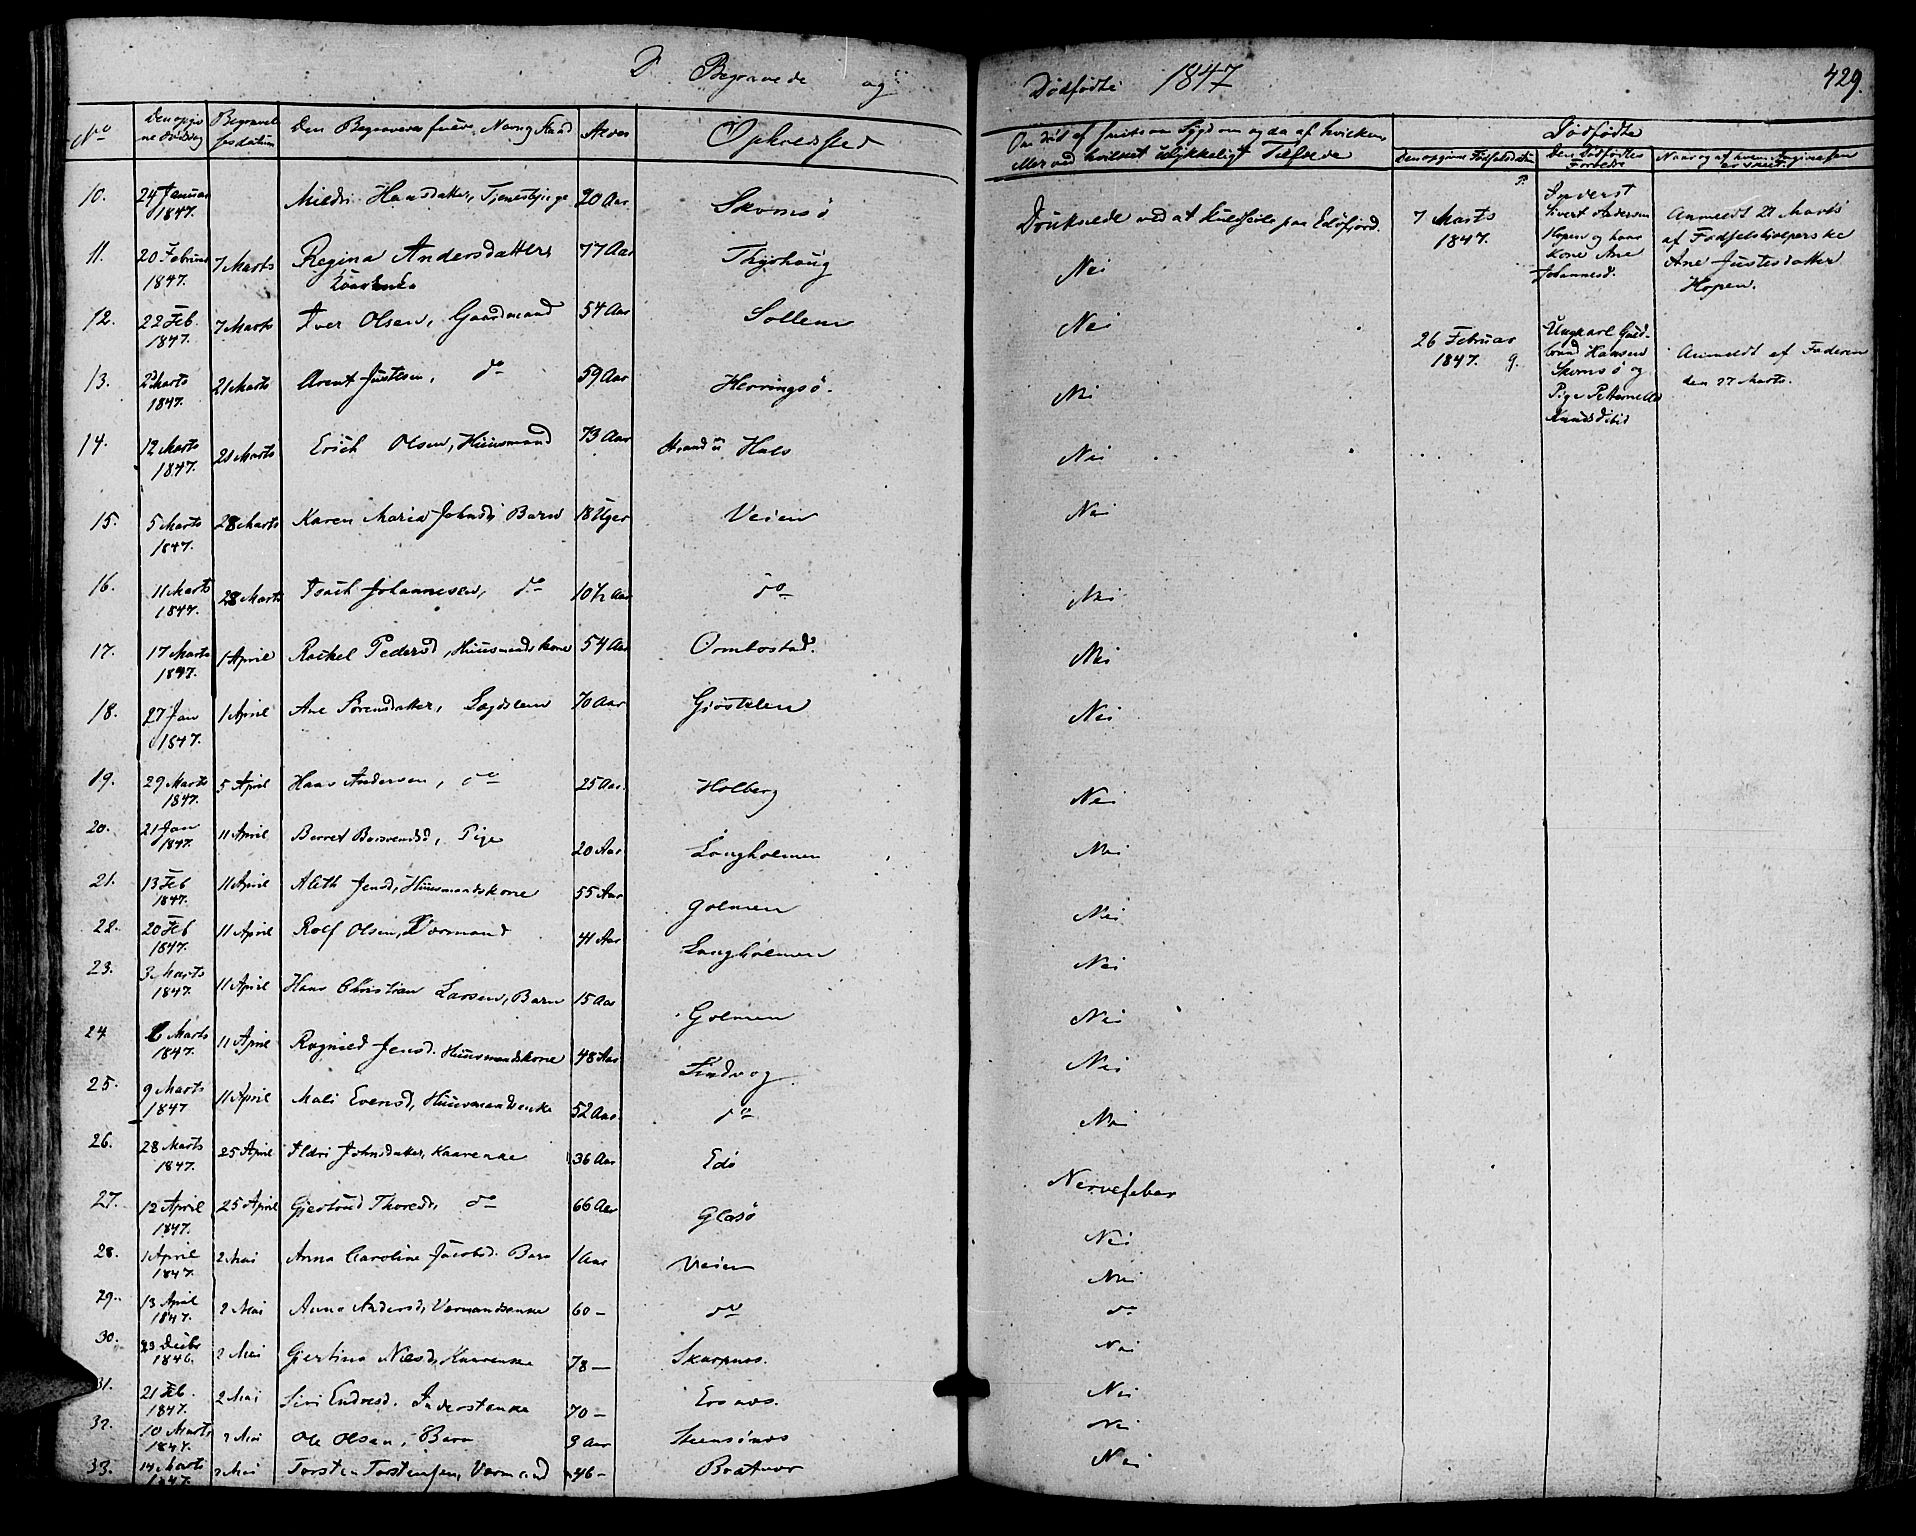 D. Begravede og Dødfødte 1847
429.
No
Den opgivne Dødsdag
Begravelsesdatum
Den Begravedes fulde Navn og Stand
Alder
Opholdssted
Dødfødte
10. 24 Januar 1847. Hansdatter, Tjenestepige 20 Aar
Druknede ved at Kuldseile paa Edøfjord.
11. 20 Februar 1847. 7 Marts Regina Andersdatter 77 Aar Nei
12. 22 Feb. 1847. 7 Marts Iver Olsen, Gaardmand 54 Aar Sollem Nei
13. 2 Marts 1847. 21 Marts Arent Justesen, do 59 Aar Herringsø. Nei
14. 12 Marts 1847. 21 Marts Erich Olsen, Huusmand 73 Aar Strand u Hals Nei
15. 5 Marts 1847. 28 Marts Karen Maria Johnsd, Barn 18 Uger Veien Nei
16. 11 Marts 1847. 28 Marts Isach Johannesen, do 10½ Aar do Nei
17. 17 Marts 1847. 1 April Rachel Pedersd, Huusmandskone 54 Aar Ormbostad. Nei
18. 27 Jan 1847. 1 April Ane Sørensdatter, Lægdslem 70 Aar Gjøstelen Nei
19. 29 Marts 1847. 5 April Hans Andersen, do 25 Aar. Holberg Nei
20. 21 Jan 1847. 11 April Berret Pige 20 Aar Langholmen Nei
21. 13 Feb 1847. 11 April Aleth Jensd, Huusmandskone 55 Aar Golmen Nei
22. 20 Feb 1847. 11 April Rolf Olsen, Værmand 41 Aar Langholmen Nei
23. 3 Marts 1847. 11 April Hans Christian Larsen, Barn 15 Aar Golmen Nei
24. 6 Marts 1847. 11 April Ragnild Jensd. Huusmandskone 48 Aar Nei
25. 9 Marts 1847 11 April Mali Evensd, Huusmandsenke 52 Aar. do Nei
26. 28 Marts 1847. 25 April Ildri Johnsdatter, Kaarenke 36 Aar Edø Nervefeber
27. 12 April 1847. 25 April Gjertrud Thoresd, do 66 Aar Glasø Nei
28. 1 April 1847. 2 Mai Anna Caroline Jacobsd. Barn 1 Aar Veien Nei
29. 13 April 1847. 2 Mai Anne Andersd, Værmandsenke 60 — do do
30. 23 Decbr 1846. 2 Mai Gjertina Nilsd, Kaarenke 78 — Skarpnes. Nei
31. 21 Feb. 1847. 2 Mai Siri Endresd. Inderstenke 70 — Ersnes. Nei
32. 10 Marts 1847. 2 Mai Ole Olsen, Barn 3 Aar Steensønes Nei
33. 14 Marts 1847. 2 Mai Torsten Torstensen, Værmand 46 — Bratvær Nei
7 Marts 1847.
Inderst
Sivert Andersen
Hopen og hans
Kone Ane
Johannesd.
Anmeldt 21 Marts
af Fødselshielperske
Ane Justesdatter
Hopen.
26 Februar 1847. g.
Ungkarl Guldbrand Hansen
og
Pige
Anmeldt af Faderen
den 27 Marts.